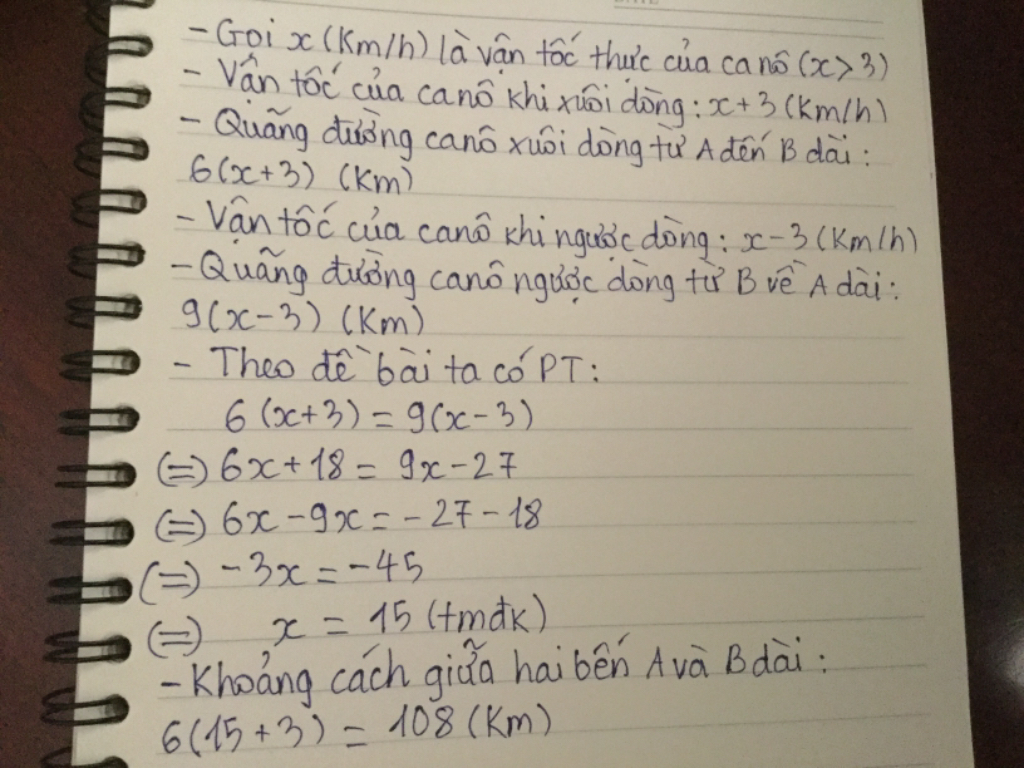 - Gọi x (Km/h) là vận tốc thực của canô (x > 3)
- Vận tốc của canô khi xuôi dòng: x + 3 (Km/h)
- Quãng đường canô xuôi dòng từ A đến B dài:
6(x+3) (Km)
- Vận tốc của canô khi ngược dòng: x - 3 (Km/h)
- Quãng đường canô ngược dòng từ B về A dài:
9(x-3) (Km)
- Theo đề bài ta có PT:
6(x+3) = 9(x-3)
(=) 6x + 18 = 9x - 27
(=) 6x - 9x = - 27 - 18
(=) -3x = -45
(=) x = 15 (tmđk)
- Khoảng cách giữa hai bến A và B dài:
6(15 + 3) = 108 (Km)